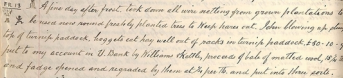 A fine day after frost. Took down all wire netting from grown plantations to
be used now round freshly planted trees to keep hares out. John blowing up dung
top of turnip paddock. hoggets eat hay well out of racks in turnip paddock. £90-10-9
put to my account in U. Bank by Williams & Kettle, proceeds of bale of matted wool,
and fadge opened and regraded by them at and put into three sorts.